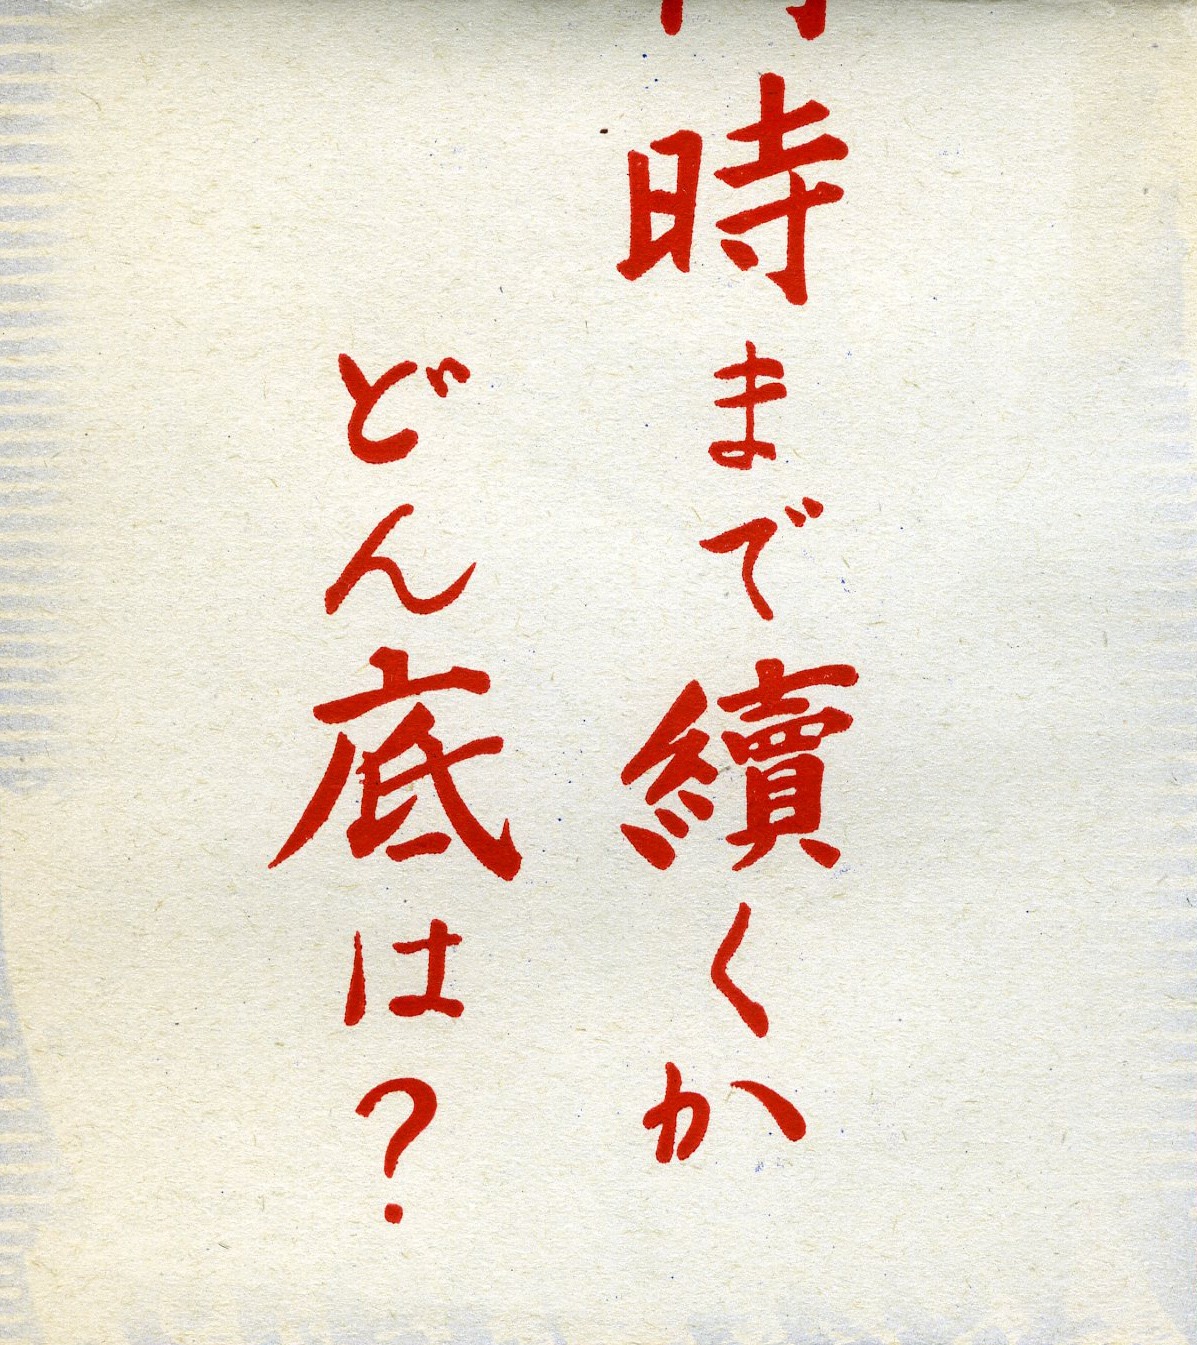 時まで續くか
どん底は?